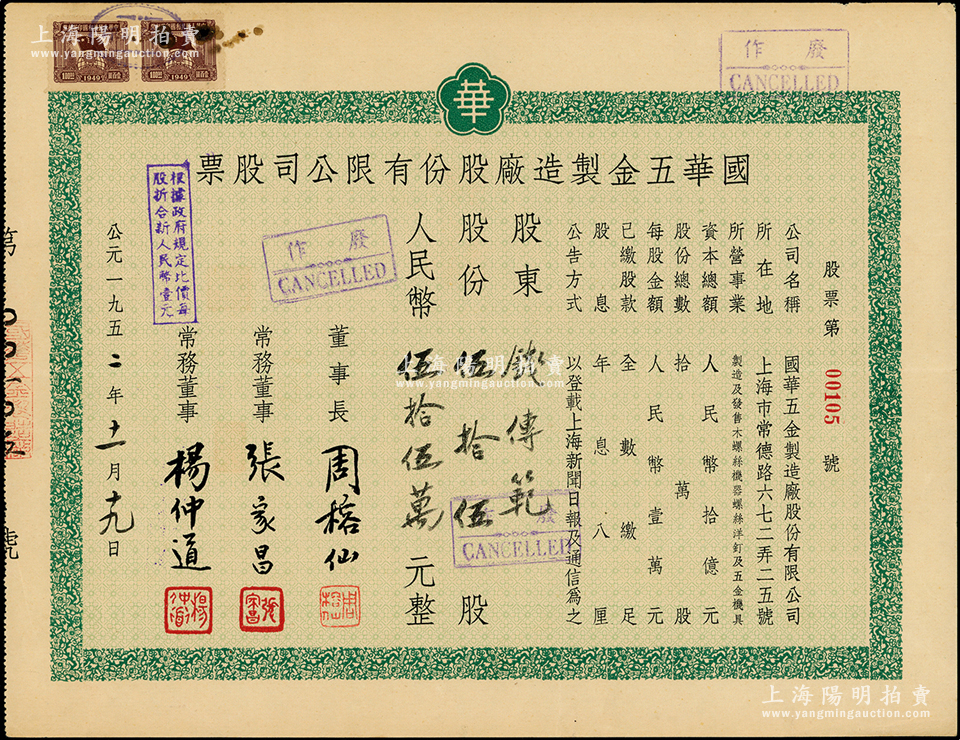 上海陽明拍賣
www.yangmingauction.com
1949
1949
廢作
CANCELLED
華
國華五金製造廠股份有限公司股票
股票第00105號
公司名稱 國華五金製造廠股份有限公司
所在地 上海市常德路六七二弄二五號
所營事業 製造及發售木螺絲機器螺絲洋釘及五金機具
資本總額 人民幣拾億元
股份總數 拾萬股
每股金額 人民幣壹萬元
已繳股款 全數繳足
股息 年息八厘
公告方式 以登載上海新聞日報及通信為之
股東 傳範
股份 伍拾伍股
人民幣 伍拾伍萬元整
廢作
CANCELLED
廢作
CANCELLED
董事長 周榕仙
常務董事 張家昌
常務董事 楊仲道
根據政府規定比價每
股折合新人民幣壹元
公元一九五二年十一月十九日
第 號
上海陽明拍賣
www.yangmingauction.com
上海陽明拍賣
www.yangmingauction.com